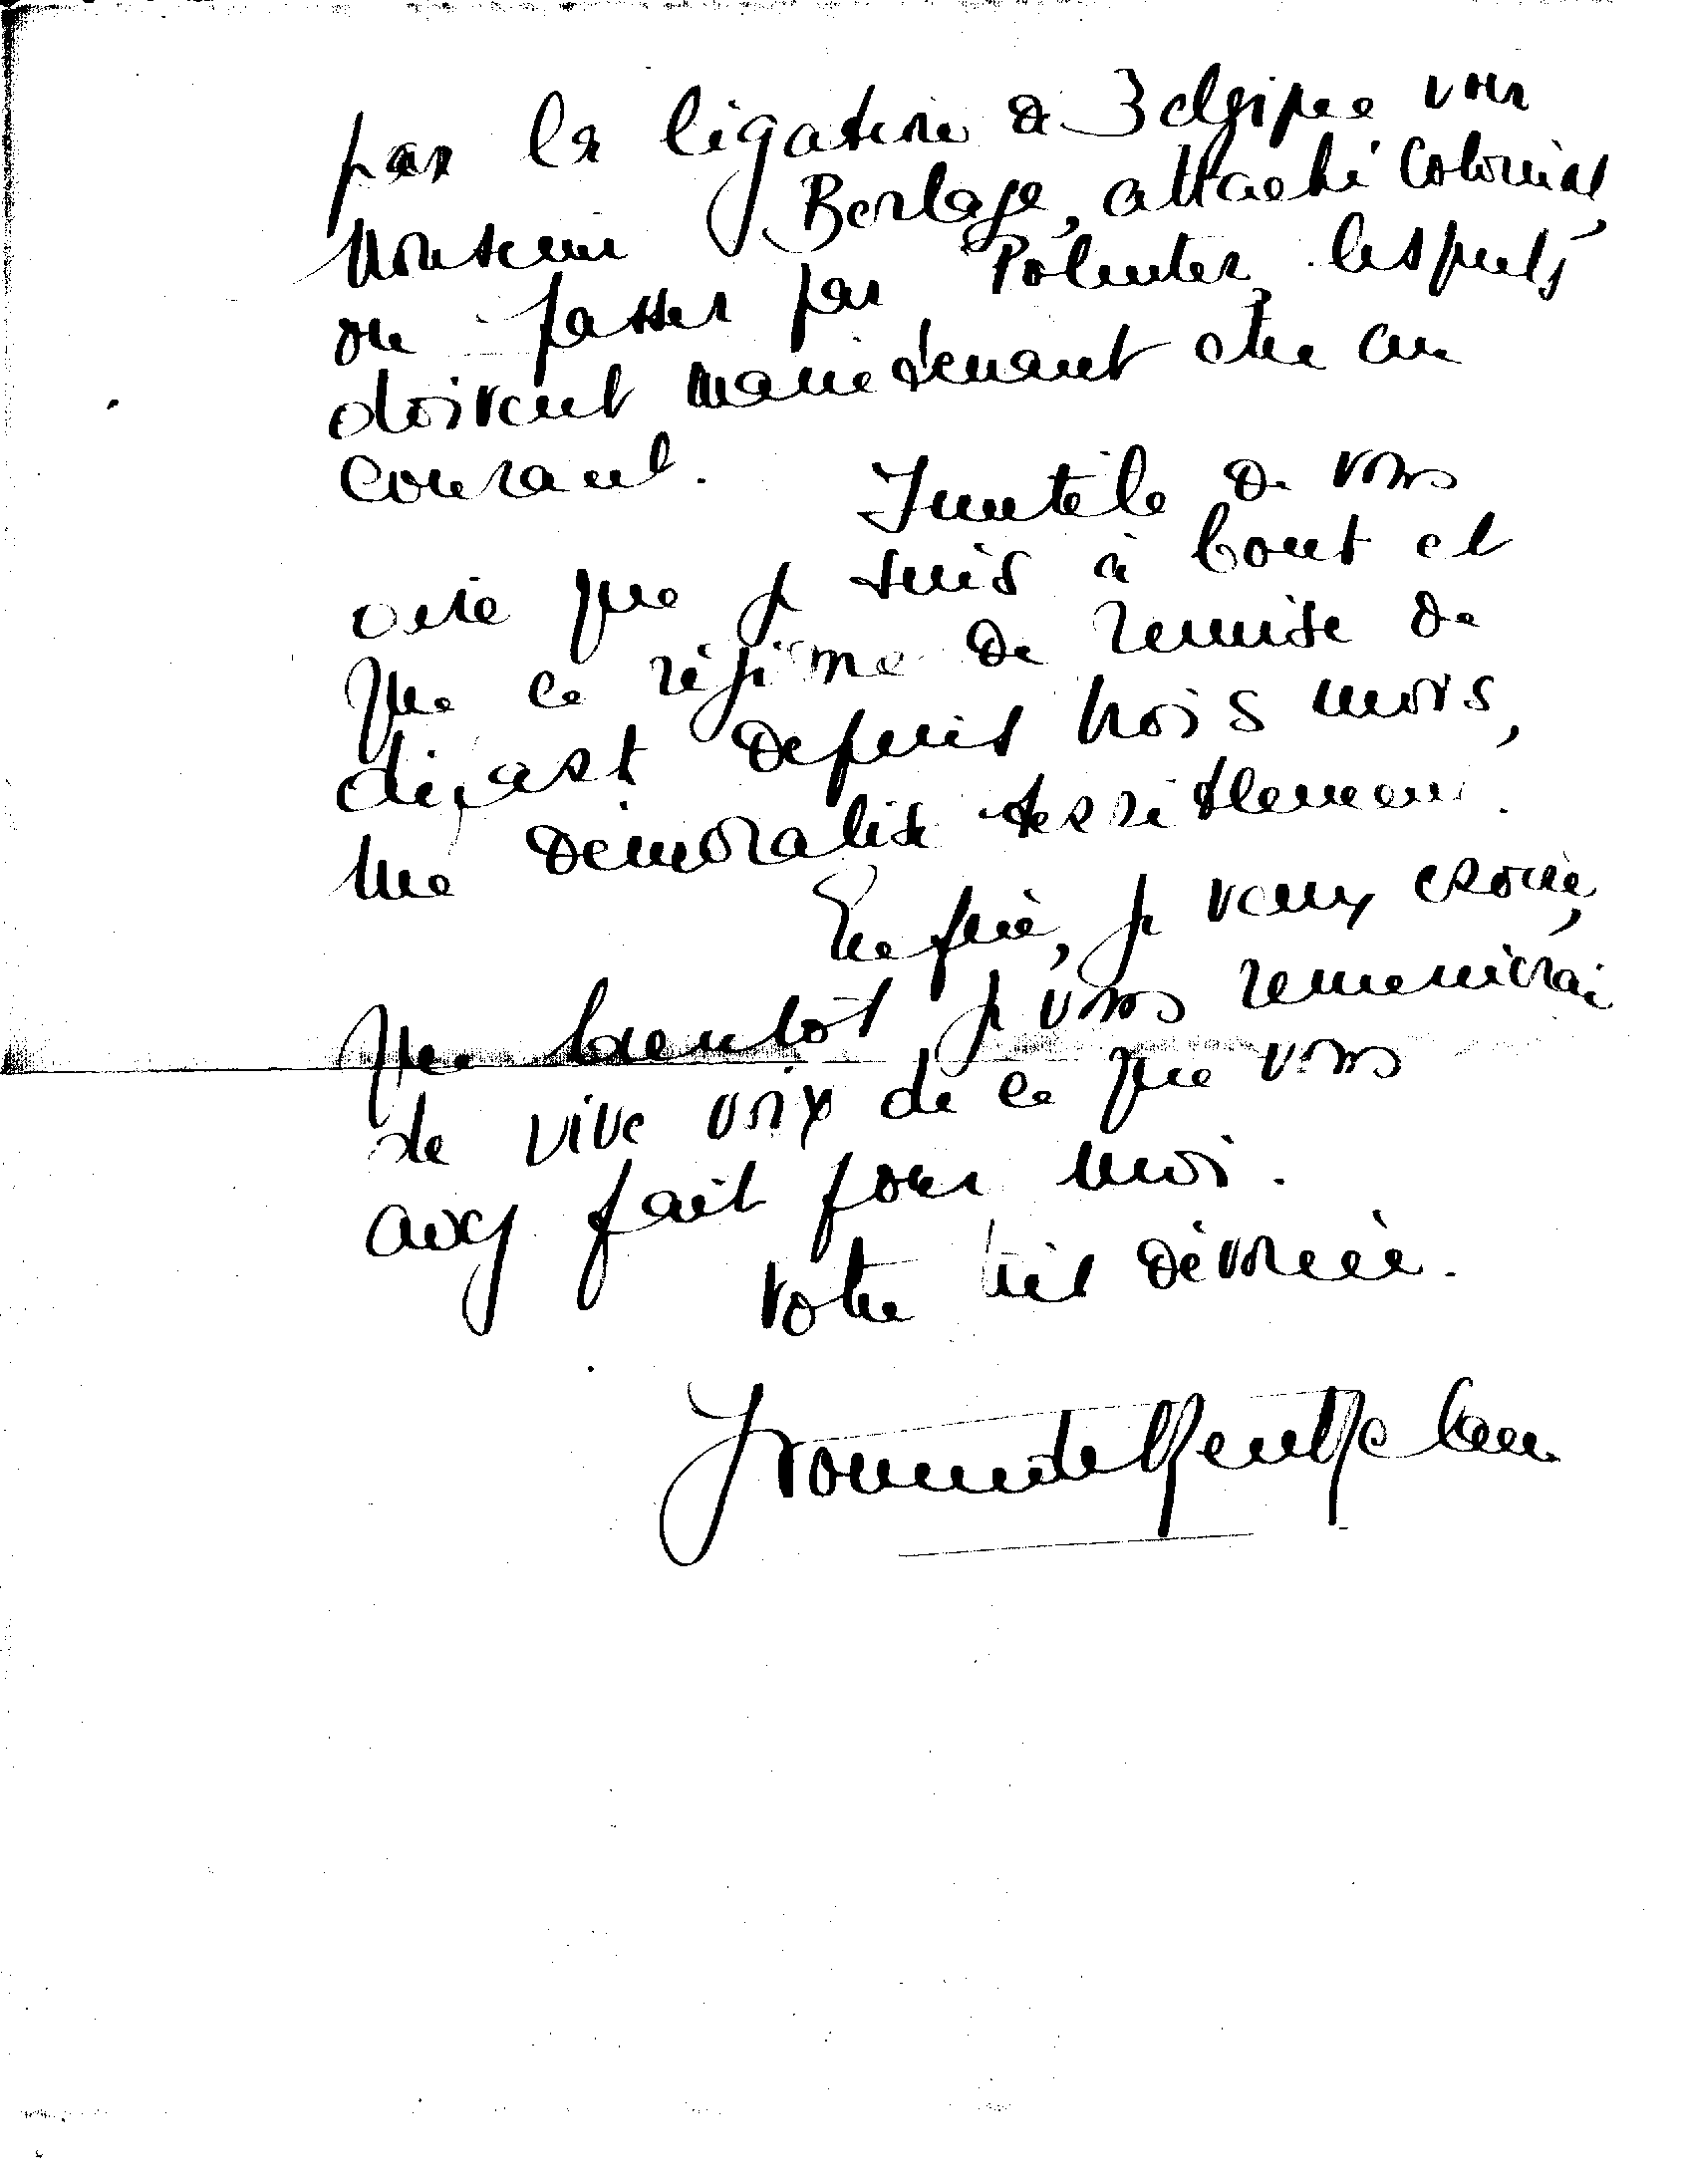 par la légation de Belgique voir
Monsieur Berlage, attaché Colonial,
ou passer par Polinter, lesquels
doivent maintenant être au
courant.
Inutile de vous
dire que je suis à bout et
que ce régime de remise de
départ depuis trois mois,
me démoralise terriblement.
Enfin, je veux croire,
que bientôt je vous remercierai
de vive voix de ce que vous
avez fait pour moi.
Votre très dévouée.